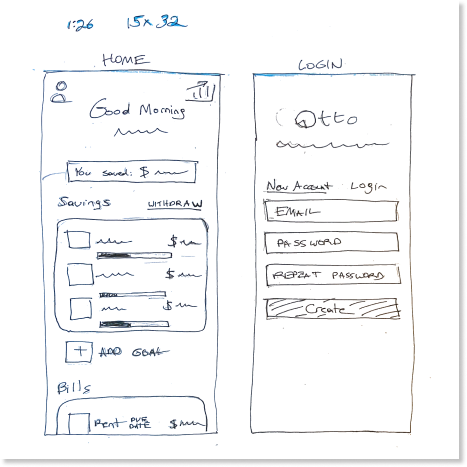 1:26 15x32
HOME
Good Morning
You saved: $
Savings WITHDRAW
$
$
$
+ ADD GOAL
Bills
Rent DUE DATE $
LOGIN
Otto
New Account Login
EMAIL
PASSWORD
REPEAT PASSWORD
Create